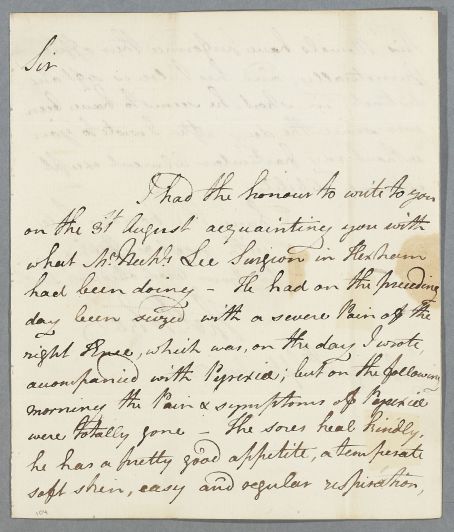 Sir
I had the honour to write to you
on the 3d. August acquainting you with
what Mr. Nichs. Lee Surgion in Hexham
had been doing – He had on the preceding
day been seized with a severe Pain of the
right Knee, which was, on the day I wrote,
accompanied with Pyrexia; but on the following
morning the Pain & symptoms of Pyrexia
were totally gone – The sores heal kindly,
he has a pretty good appetite, a temperate
soft skin, easy and regular respiration,